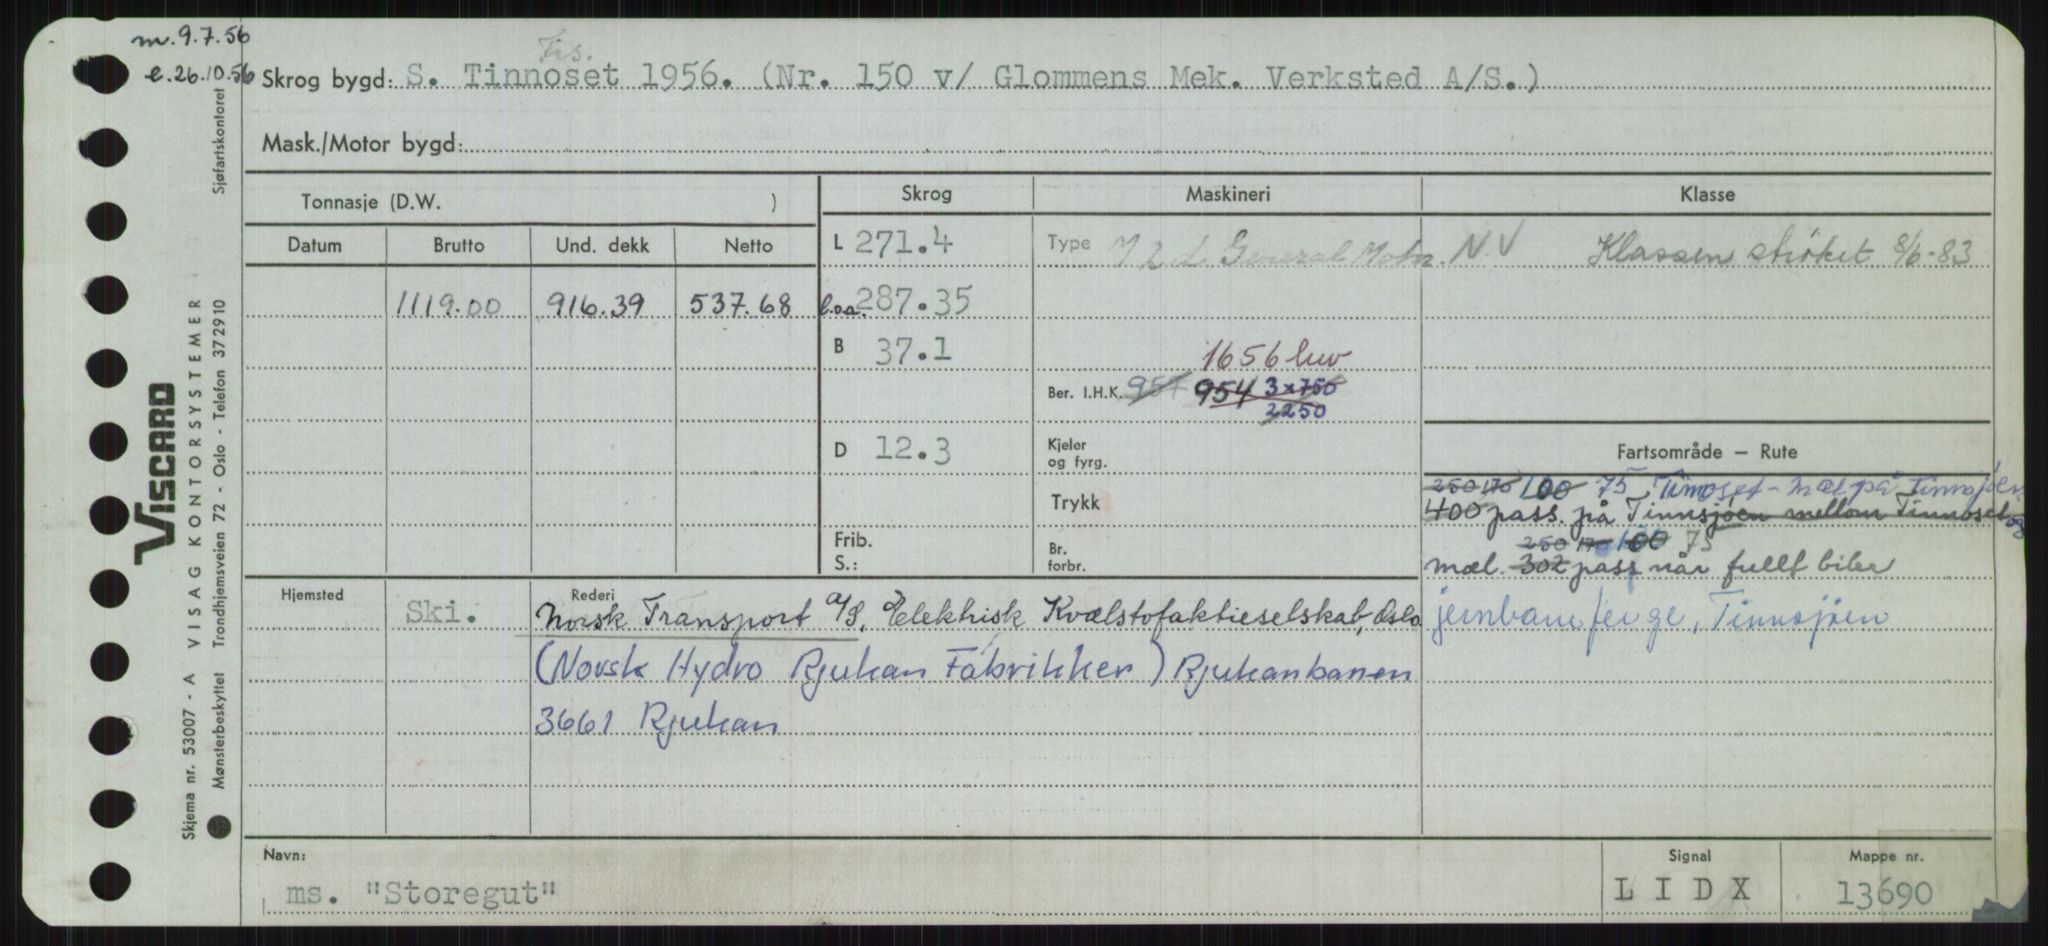 m. 9.7.56
e. 26.10.56
Frs.
Skrog bygd: S. Tinnoset 1956. (Nr. 150 v/ Glommens Mek. Verksted A/S.)
Mask./Motor bygd:
Tonnasje (D.W. ) Skrog Maskineri Klasse
Datum Brutto Und. dekk Netto L 271.4 Type 12 d. General Motor. N V Klassen strøket 8/6-83
1119.00 916.39 537.68 l.o.a. 287.35
B 37.1 1656 luv
Ber. I.H.K. 957 954 3x750
2250
D 12.3 Kjeler og fyrg. Fartsområde – Rute
250 170 100 75 Tinnoset - Mæl på Tinnsjöen
Trykk 400 pass. på Tinnsjöen mellom Tinnoset og
Frib. Br. 250 170 100 75
S.: forbr. mæl. 302 pass når fullt biler
Hjemsted Ski. Rederi Norsk Transport A/S, Elektrisk Kvælstofaktieselskab, Oslo jernbaneferge, Tinnsjöen
(Norsk Hydro Rjukan Fabrikker) Rjukanbanen
3661 Rjukan
Navn: Signal Mappe nr.
ms. "Storegut" L I D X 13690
Skjema nr. 53007 - A VISAG KONTORSYSTEMER
Mønsterbeskyttet Trondhjemsveien 72 - Oslo - Telefon 372910 Sjøfartskontoret
VISCARD